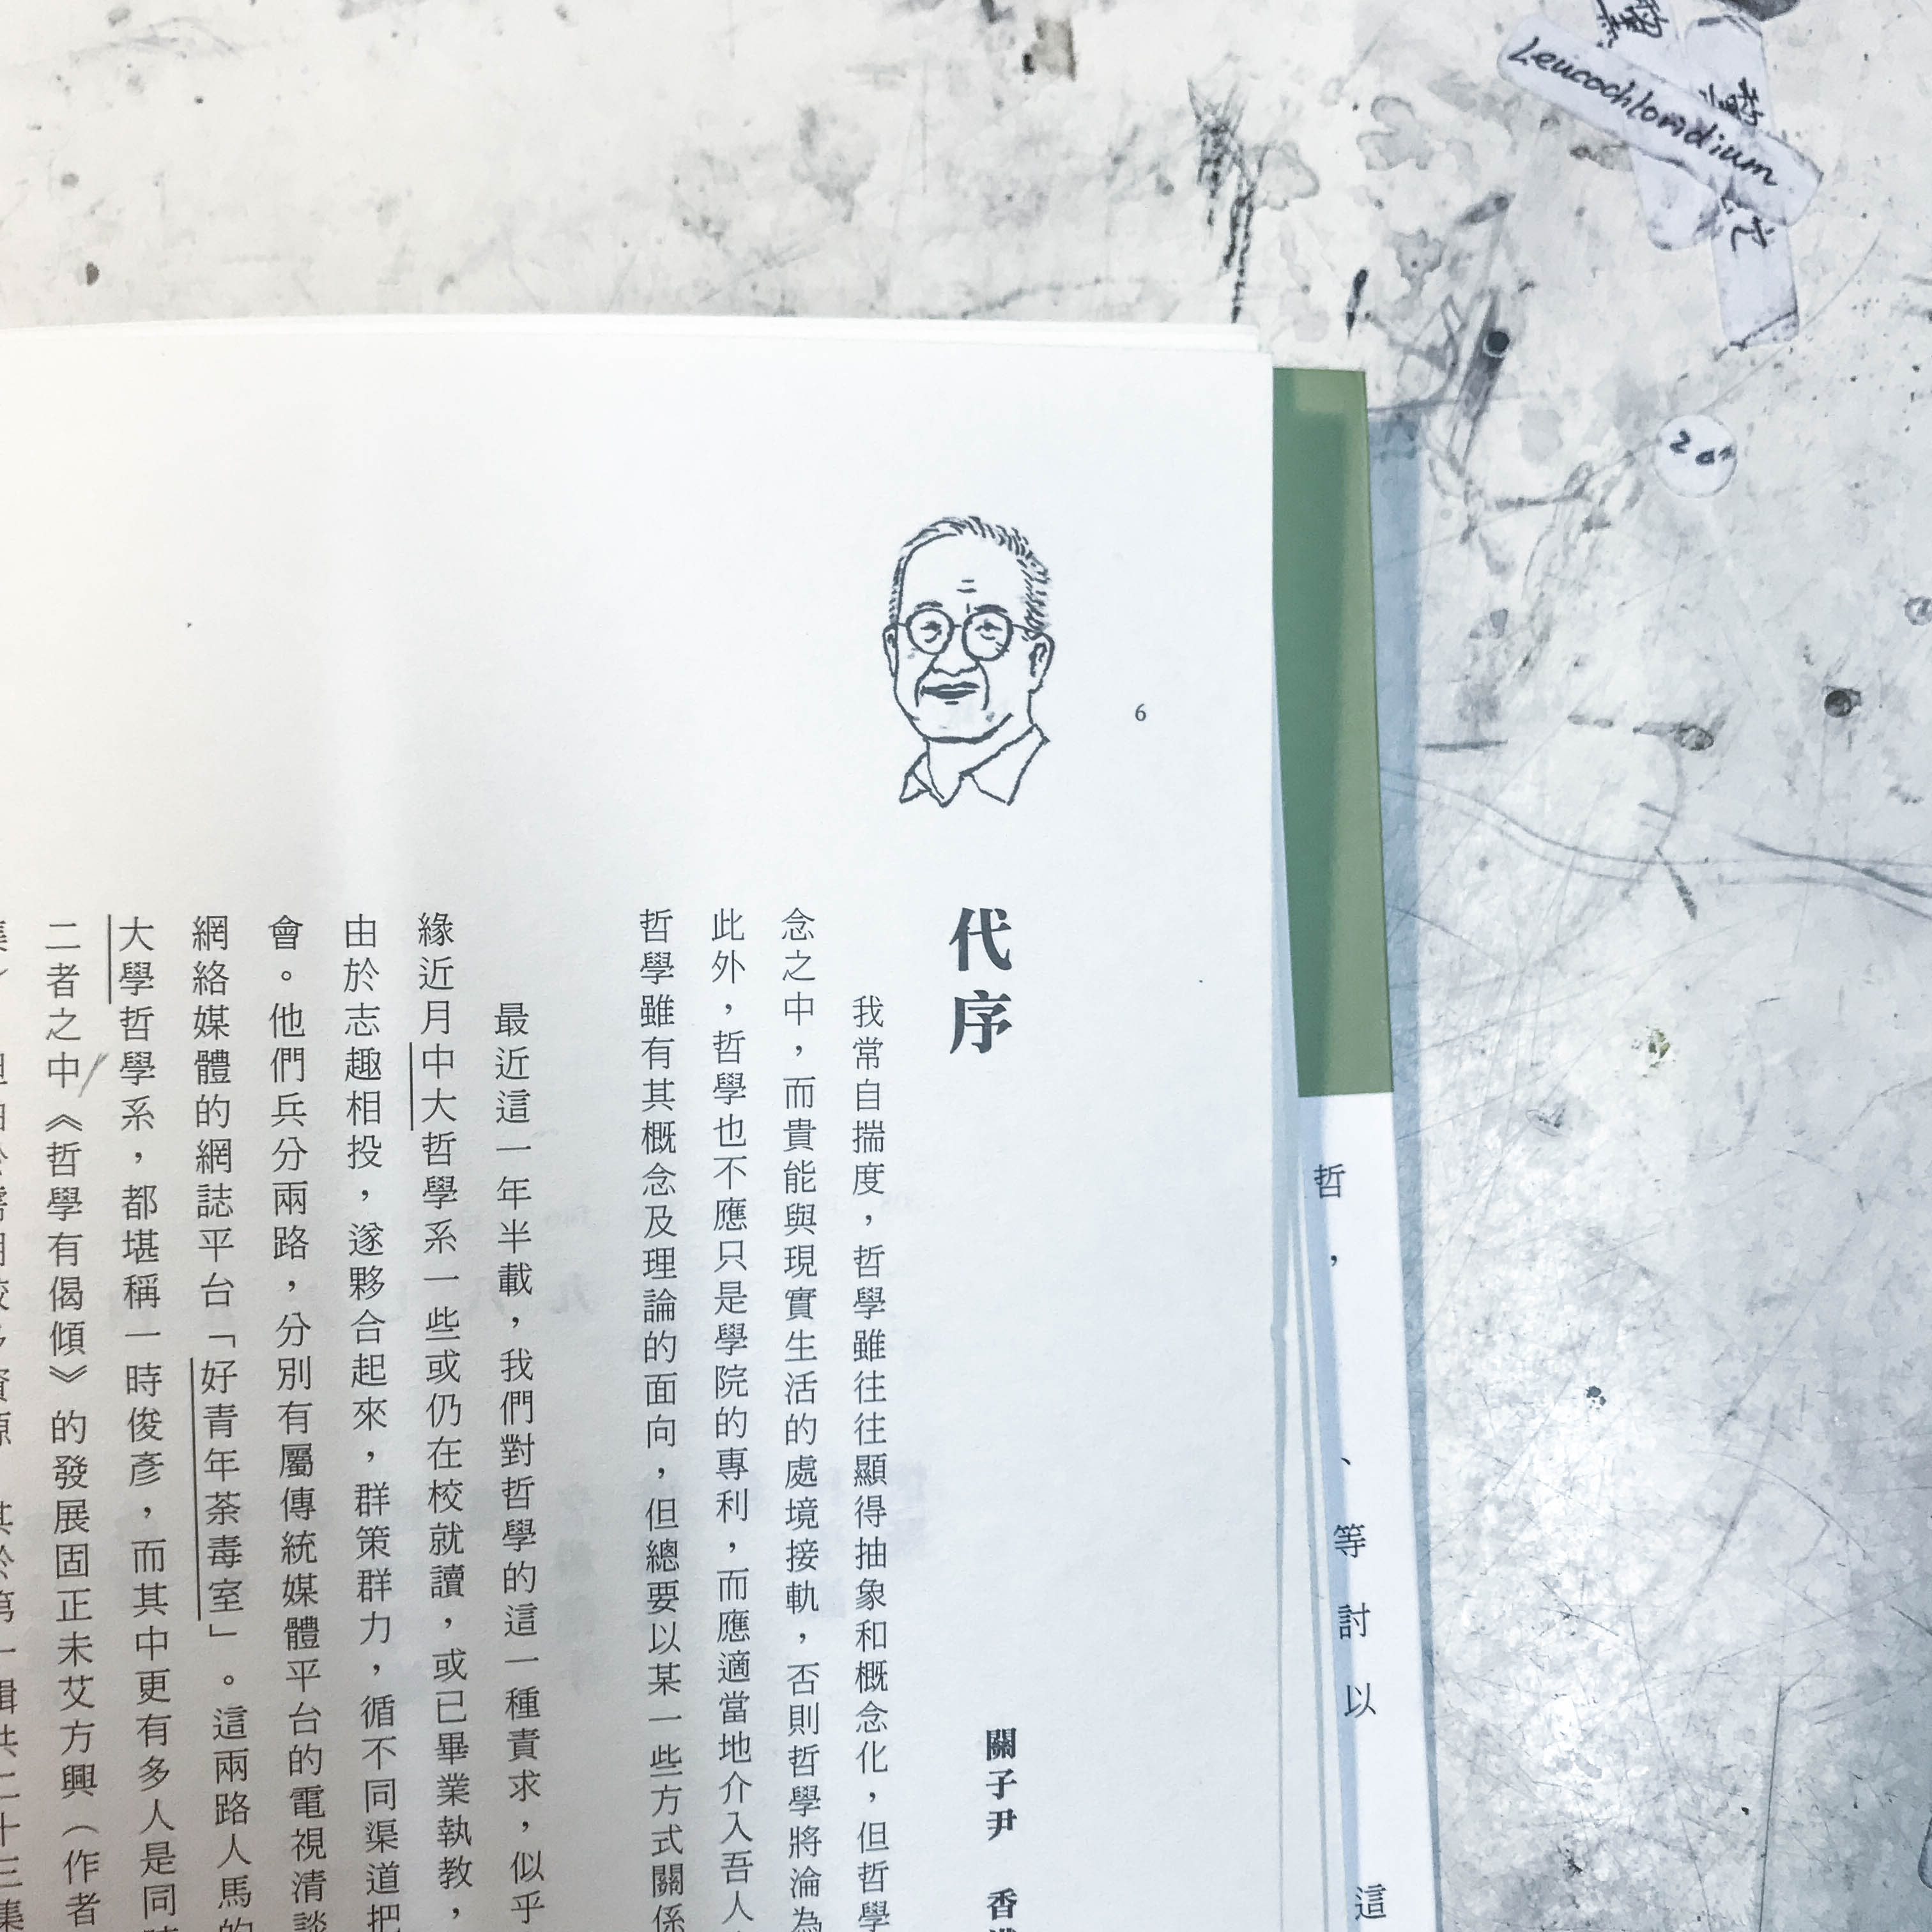 6
代序
關子尹 香港
我常自揣度，哲學雖往往顯得抽象和概念化，但哲學
念之中，而貴能與現實生活的處境接軌，否則哲學將淪為
此外，哲學也不應只是學院的專利，而應適當地介入吾人
哲學雖有其概念及理論的面向，但總要以某一些方式關係
最近這一年半載，我們對哲學的這一種責求，似乎
緣近月中大哲學系一些或仍在校就讀，或已畢業執教，
由於志趣相投，遂夥合起來，群策群力，循不同渠道把
會。他們兵分兩路，分別有屬傳統媒體平台的電視清談
網絡媒體的網誌平台「好青年荼毒室」。這兩路人馬的
大學哲學系，都堪稱一時俊彥，而其中更有多人是同
二者之中《哲學有偈傾》的發展固正未艾方興（作者
第一輯共二十三集
哲，、等討以這
Leucochloridium